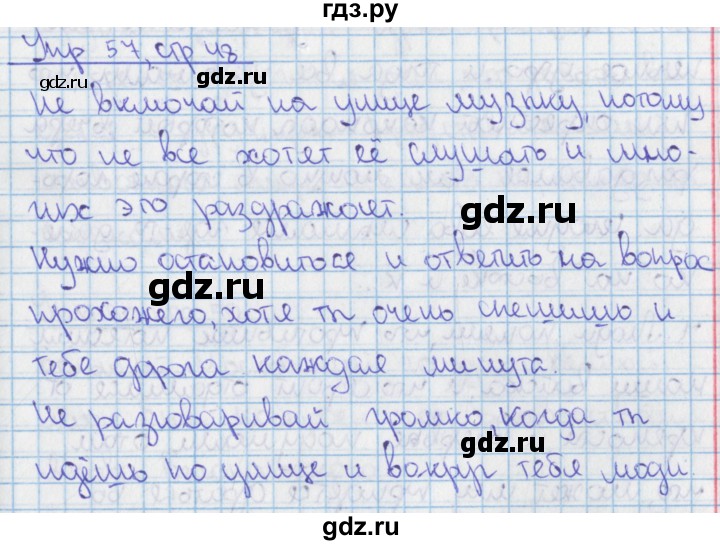 гдз.ру
Упр 57, стр 43
gdz.ru
gdz.ru
Не включай на улице музыку, потому
что не все хотят её слушать и мно-
gdz.ru
гих это раздражает.
Нужно остановиться и ответить на вопрос
gdz.ru
прохожего, хотя ты очень спешишь и
тебе дорога каждая минута.
Не разговаривай громко, когда ты
gdz.ru
идёшь по улице и вокруг тебя люди.
gdz.ru